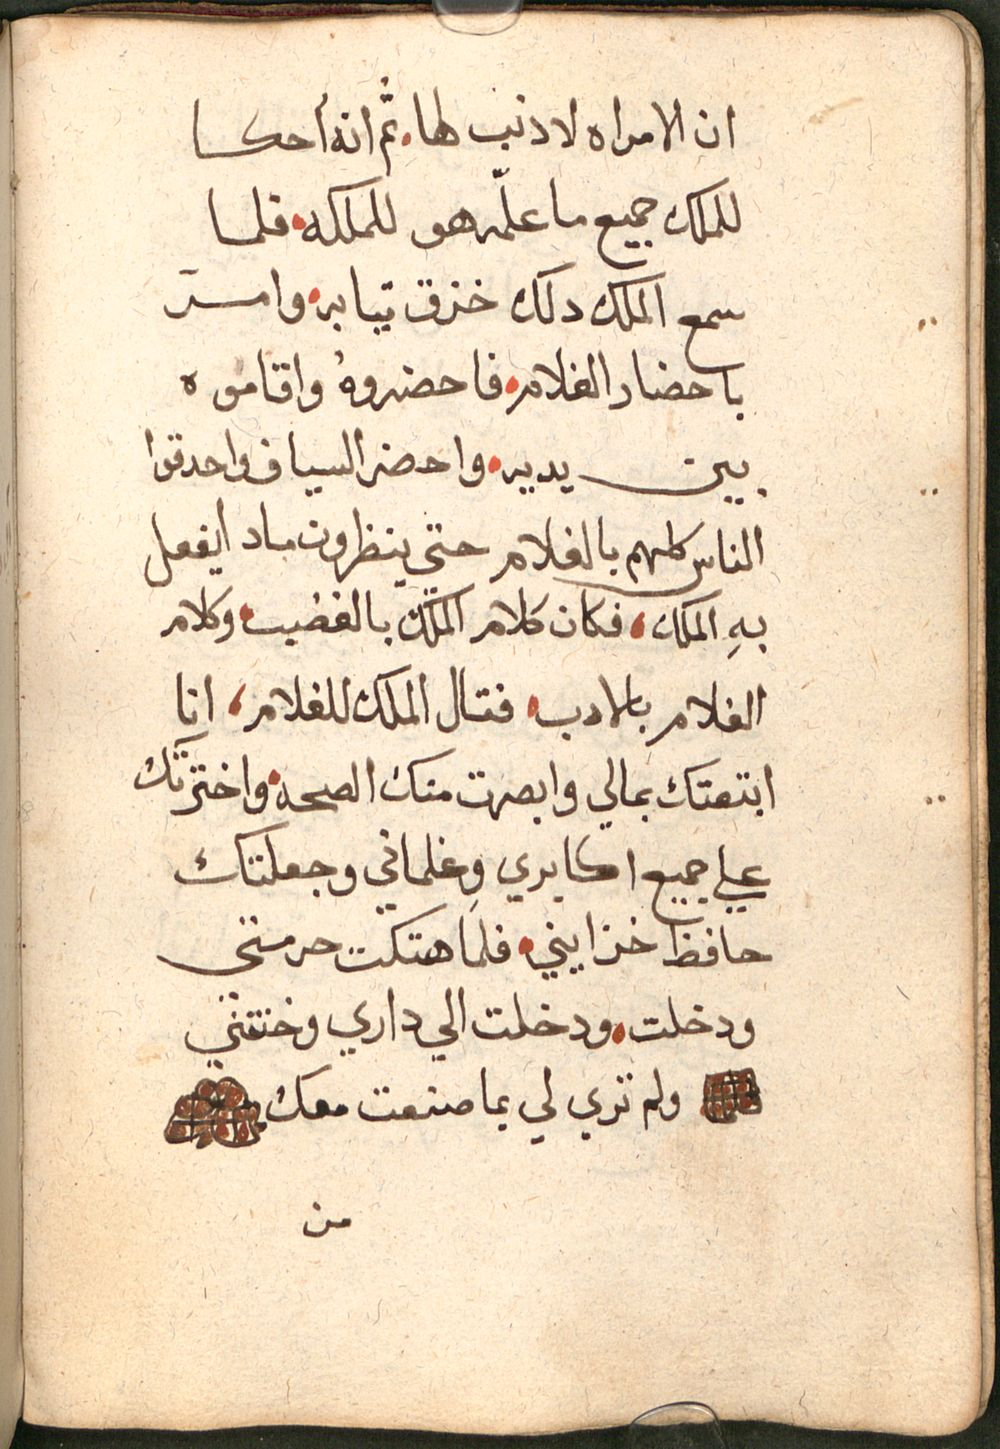 ان الامراه لا دنب لها. ثم انه احكا
للملك جميع ما علمه هو للملكه. فلما
سمع الملك دلك خزق تيابه. وامر
باحضار الغلام. فاحضروهُ واقاموه
بين يديه. واحضر السياف واحدقوا
الناس كلهم بالغلام حتي ينظرون ماد ايفعل
بهِ الملك، فكان كلام الملك بالغضب. وكلام
الغلام بالادب. فقال الملك للغلام، انا
ابتعتك بمالي وابصرت منك الصحه. واختزتك
علي جميع اكابري وغلماني وجعلتك
حافظ خزايني. فلما هتكت حرمتي
ودخلت. ودخلت الي داري وخنتني
ولم تري لي بما صنعت معك
من